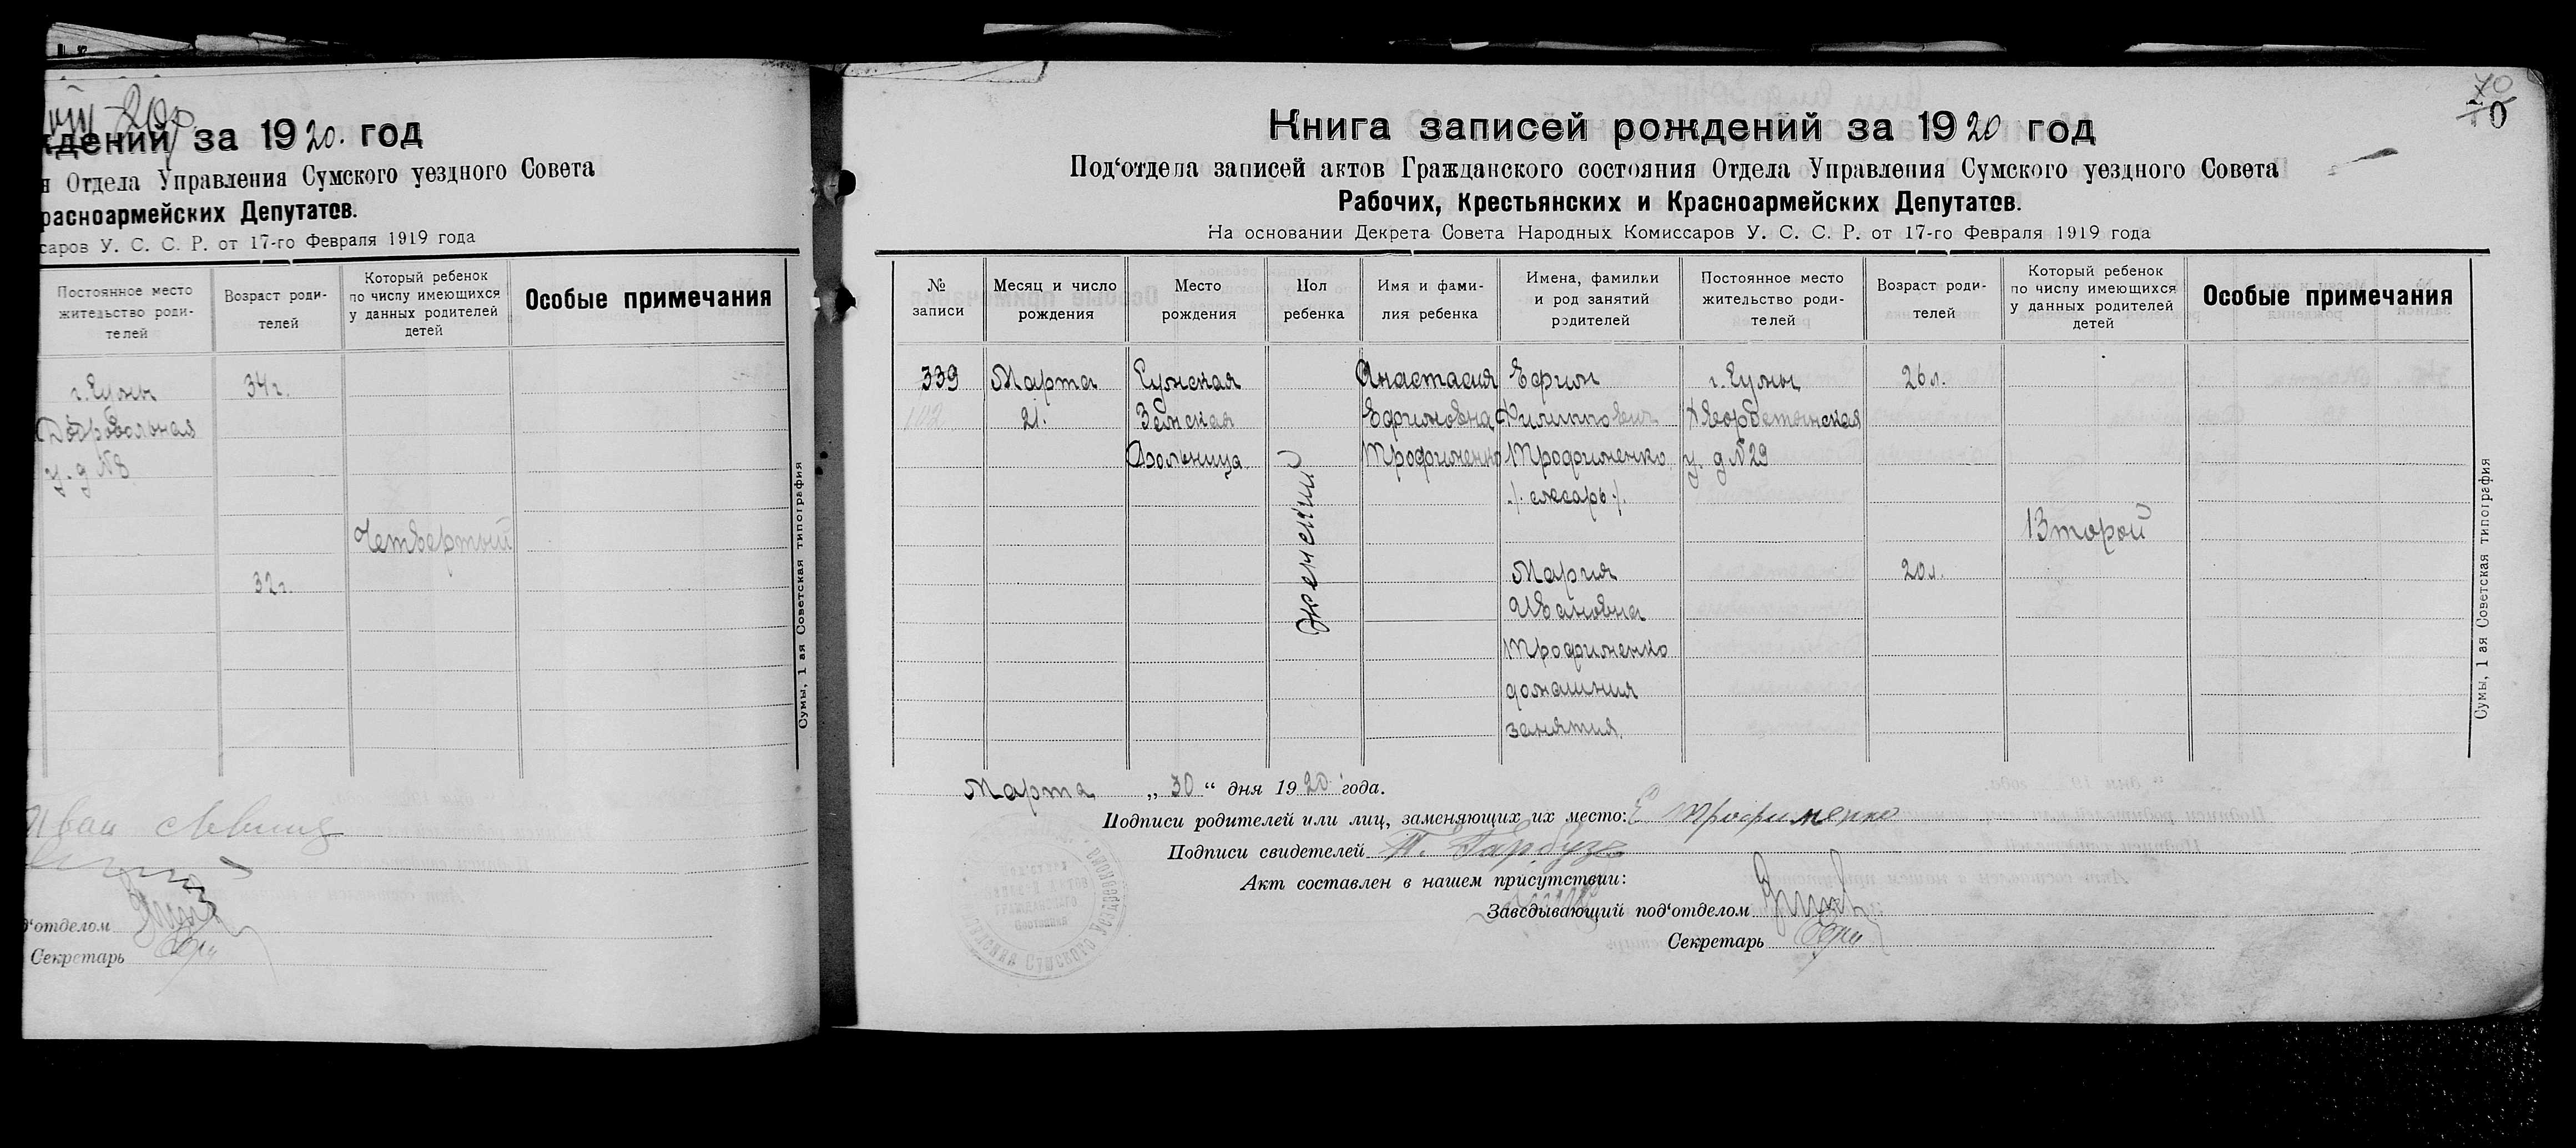 ждений за 1920. год
я Отдела Управления Сумского уездного Совета
расноармейских Депутатов.
саров У. С. С. Р. от 17-го Февраля 1919 года
Постоянное место жительство роди- телей
Возраст роди- телей
Который ребенок по числу имеющихся у данных родителей детей
Особые примечания
г. Сумы
34 г.
Добровольная
у. д № 8.
Четвертый
32 г.
Сумы, 1 ая Советская типография
Иван
д‘отделом
Секретарь
70
Книга записей рождений за 1920 год
Под‘отдела записей актов Гражданского состояния Отдела Управления Сумского уездного Совета
Рабочих, Крестьянских и Красноармейских Депутатов.
На основании Декрета Совета Народных Комиссаров У. С. С. Р. от 17-го Февраля 1919 года
№ записи
Месяц и число рождения
Место рождения
Пол ребенка
Имя и фами- лия ребенка
Имена, фамилии и род занятий родителей
Постоянное место жительство роди- телей
Возраст роди- телей
Который ребенок по числу имеющихся у данных родителей детей
Особые примечания
339
102
Марта
21.
Сумская
Земская
Больница
женский
Анастасия
Ефимовна
Трофименко
Ефим
Филиппович
Трофименко
/. слесарь ./.
Мария
Ивановна
Трофименко
домашния
занятия.
г. Сумы,
у. д № 29
26 л.
20 л.
Второй
Сумы, 1 ая Советская типография
Марта „ 30 “ дня 1920 года.
Подписи родителей или лиц, заменяющих их место: Е Трофименко
Подписи свидетелей Т. Гарбуз
Акт составлен в нашем присутствии:
Заведывающий под‘отделом
Секретарь